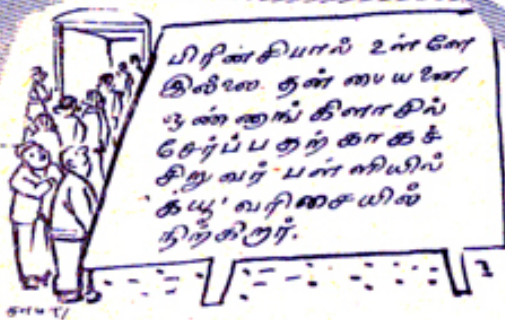 பிரின்சிபால் உள்ளே
இல்லை. தன் பையனை
ஒண்ணாங் கிளாசில்
சேர்ப்பதற்காகச்
சிறுவர் பள்ளியில்
'க்யூ' வரிசையில்
நிற்கிறார்.